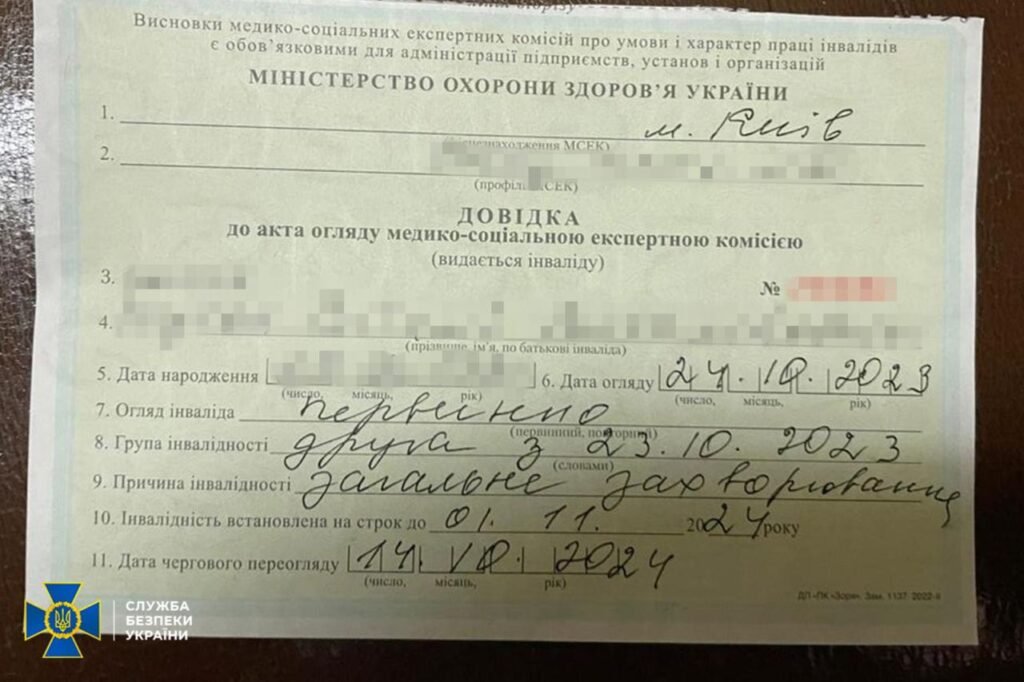 Висновки медико-соціальних експертних комісій про умови і характер праці інвалідів
є обов'язковими для адміністрації підприємств, установ і організацій
МІНІСТЕРСТВО ОХОРОНИ ЗДОРОВ'Я УКРАЇНИ
1. м. Київ
МСЕК)
2.
(профіль МСЕК)
ДОВІДКА
до акта огляду медико-соціальною експертною комісією
(видається інваліду)
3. №
4.
(прізвище, ім'я, по батькові інваліда)
5. Дата народження 6. Дата огляду 24.10.2023
(число, місяць, рік) (число, місяць, рік)
7. Огляд інваліда первинно
(первинний, повторний)
8. Група інвалідності друга з 23.10.2023
(словами)
9. Причина інвалідності загальне захворювання
10. Інвалідність встановлена на строк до 01. 11. 2024 року
11. Дата чергового переогляду 14.10.2024
(число, місяць, рік)
ДП «ПК «Зоря». Зам. 1137. 2022-ІІ
СЛУЖБА
БЕЗПЕКИ
УКРАЇНИ